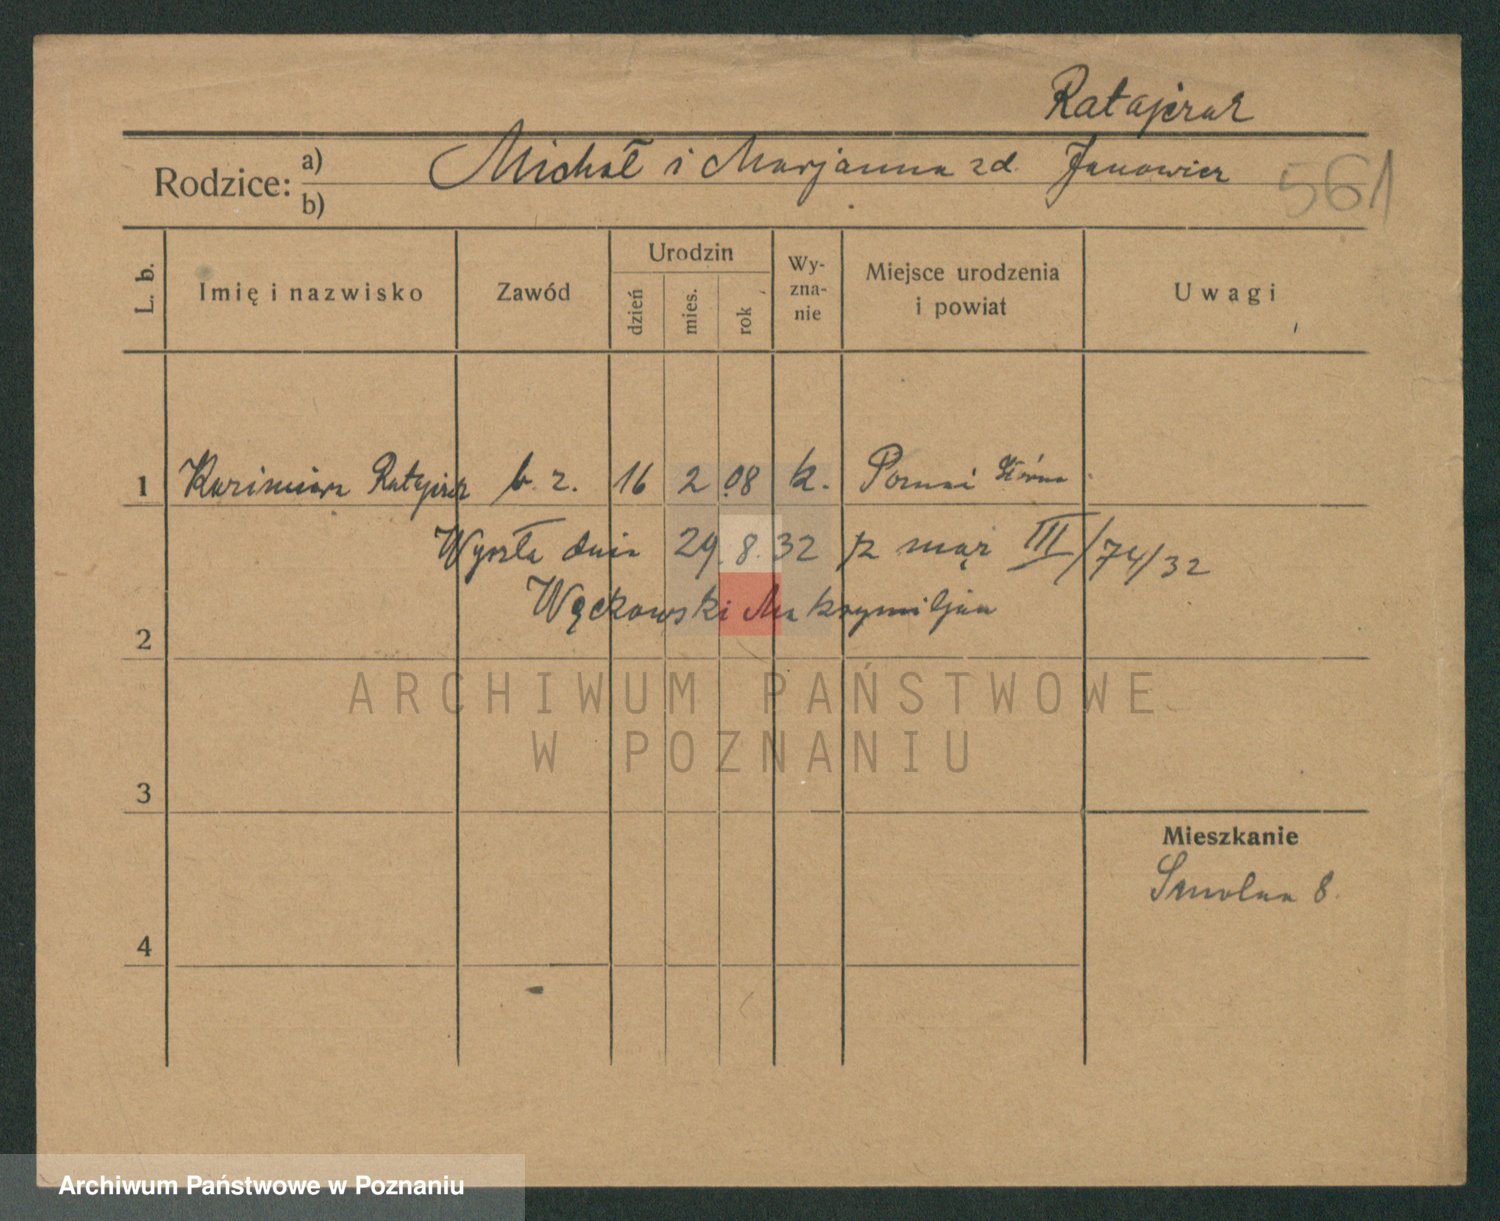 Ratajczak
Rodzice: a) Michał i Marjanna zd. Janowicz
b)
561
L. b.
Imię i nazwisko
Zawód
Urodzin
dzień
mies.
rok
Wy-
zna-
nie
Miejsce urodzenia
i powiat
Uwagi
1 Kazimiera Ratajczak b. z. 16 2 08 k. Poznań
Wyszła dnia 29.8.32 za mąż III/74/32
Węckowski Maksymiljan
2
ARCHIWUM PAŃSTWOWE
W POZNANIU
3
Mieszkanie
Smolna 8.
4
Archiwum Państwowe w Poznaniu